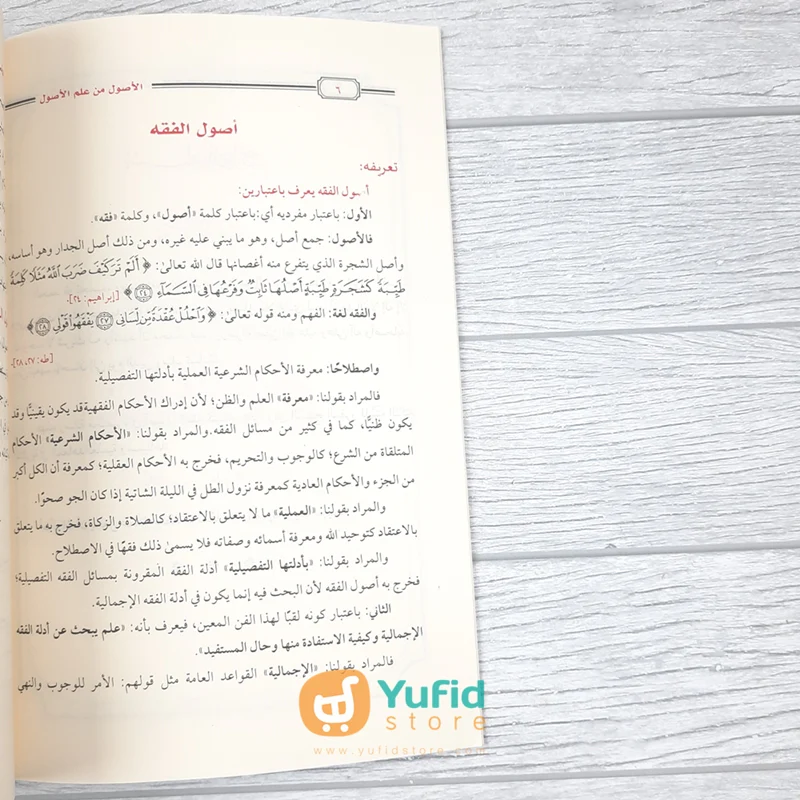 ٦
الأصول من علم الأصول
أصول الفقه
تعريفه:
أصول الفقه يعرف باعتبارين:
الأول: باعتبار مفرديه أي: باعتبار كلمة «أصول»، وكلمة «فقه».
فالأصول: جمع أصل، وهو ما يبني عليه غيره، ومن ذلك أصل الجدار وهو أساسه،
وأصل الشجرة الذي يتفرع منه أغصانها قال الله تعالى: ﴿ أَلَمْ تَرَ كَيْفَ ضَرَبَ اللَّهُ مَثَلًا كَلِمَةً
طَيِّبَةً كَشَجَرَةٍ طَيِّبَةٍ أَصْلُهَا ثَابِتٌ وَفَرْعُهَا فِي السَّمَاءِ ٢٤ ﴾ [إبراهيم: ٢٤].
والفقه لغة: الفهم ومنه قوله تعالى: ﴿ وَاحْلُلْ عُقْدَةً مِّن لِّسَانِي ٢٧ يَفْقَهُوا قَوْلِي ٢٨ ﴾
[طه: ٢٧، ٢٨].
واصطلاحًا: معرفة الأحكام الشرعية العملية بأدلتها التفصيلية.
فالمراد بقولنا: «معرفة» العلم والظن؛ لأن إدراك الأحكام الفقهية قد يكون يقينيًّا وقد
يكون ظنيًّا، كما في كثير من مسائل الفقه. والمراد بقولنا: «الأحكام الشرعية» الأحكام
المتلقاة من الشرع؛ كالوجوب والتحريم، فخرج به الأحكام العقلية؛ كمعرفة أن الكل أكبر
من الجزء والأحكام العادية كمعرفة نزول الطل في الليلة الشاتية إذا كان الجو صحوًا.
والمراد بقولنا: «العملية» ما لا يتعلق بالاعتقاد؛ كالصلاة والزكاة، فخرج به ما يتعلق
بالاعتقاد كتوحيد الله ومعرفة أسمائه وصفاته فلا يسمى ذلك فقهًا في الاصطلاح.
والمراد بقولنا: «بأدلتها التفصيلية» أدلة الفقه المقرونة بمسائل الفقه التفصيلية؛
فخرج به أصول الفقه لأن البحث فيه إنما يكون في أدلة الفقه الإجمالية.
الثاني: باعتبار كونه لقبًا لهذا الفن المعين، فيعرف بأنه: «علم يبحث عن أدلة الفقه
الإجمالية وكيفية الاستفادة منها وحال المستفيد».
فالمراد بقولنا: «الإجمالية» القواعد العامة مثل قولهم: الأمر للوجوب والنهي
Yufid
store
www.yufidstore.com